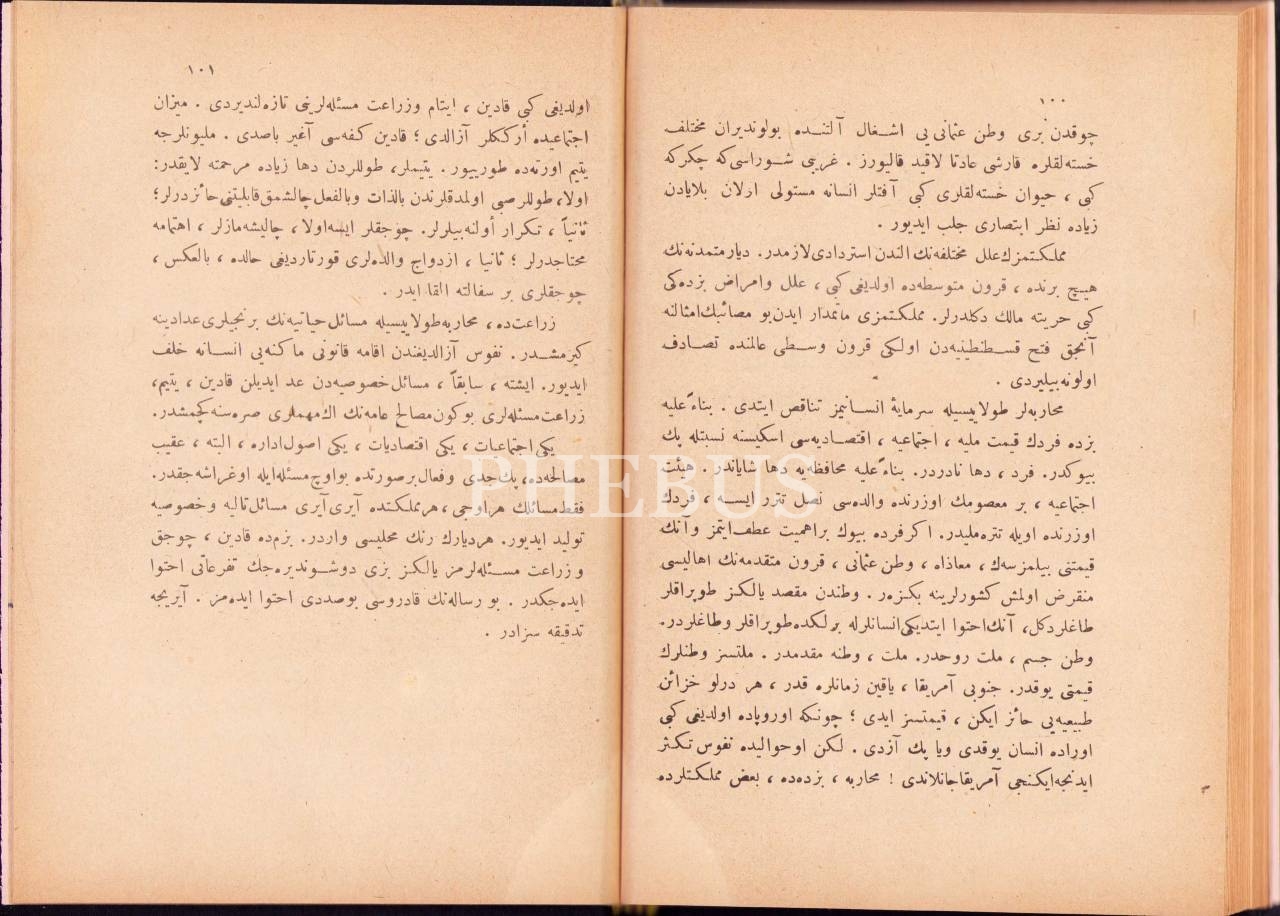 ١٠٠
چوقدن بری وطن عثمانی‌یی اشغال آلتنده بولوندیران مختلف
خسته‌لقلره قارشی عادتا لاقید قالیورز . غریبی شوراسی‌که چکرکه
کبی ، حیوان خسته‌لقلری کبی آفتلر انسانه مستولی اولان بلایادن
زیاده نظر ابتصاری جلب ایدیور .
مملکتمزك علل مختلفه‌نك الندن استردادی لازمدر . دیار متمدنه‌نك
هیچ برنده ، قرون متوسطه‌ده اولدیغی کبی ، علل وامراض بزده‌کی
کبی حریته مالك دکلدرلر. مملکتمزی ماتمدار ایدن بو مصائبك امثالنه
آنجق فتح قسطنطینیه‌دن اولکی قرون وسطی عالمنده تصادف
اولونه‌بیلیردی .
محاربه‌لر طولاییسیله سرمایهٔ انسانیمز تناقص ایتدی . بناءً علیه
بزده فردك قیمت ملیه ، اجتماعیه ، اقتصادیه‌سی اسکیسنه نسبتله پك
بیوکدر. فرد ، دها نادردر. بناءً علیه محافظه‌یه دها شایاندر . هیئت
اجتماعیه ، بر معصومك اوزرنده والده‌سی نصل تتررایسه ، فردك
اوزرنده اویله تتره‌ملیدر. اکر فرده بیوك براهمیت عطف ایتمز وآنك
قیمتنی بیلمزسه‌ك ، معاذاه ، وطن عثمانی ، قرون متقدمه‌نك اهالیسی
منقرض اولمش کشورلرینه بکزه‌ر . وطندن مقصد یالکز طوپراقلر
طاغلر دکل، آنك احتوا ایتدیکی انسانلرله برلکده طوپراقلر وطاغلردر.
وطن جسم ، ملت روحدر. ملت ، وطنه مقدمدر . ملتسز وطنلرك
قیمتی یوقدر. جنوبی آمریقا ، یاقین زمانلره قدر ، هر درلو خزائن
طبیعیه‌یی حائز ایکن ، قیمتسز ایدی ؛ چونکه اوروپاده اولدیغی کبی
اوراده انسان یوقدی ویا پك آزدی . لکن اوحوالیده نفوس تکثر
ایدنجه ایکنجی آمریقا جانلاندی ! محاربه ، بزده‌ده ، بعض مملکتلرده
١٠١
اولدیغی کبی قادین ، ایتام وزراعت مسئله‌لرینی تازه‌لندیردی . میزان
اجتماعیده أرککلر آزالدی ؛ قادین کفه‌سی آغیر باصدی . ملیونلرجه
یتیم اورته‌ده طورییور . یتیملر، طوللردن دها زیاده مرحمته لایقدر:
اولا، طوللر صبی اولمدقلرندن بالذات وبالفعل چالشمق قابلیتنی حائزدرلر؛
ثانیاً ، تکرار أولنه‌بیلرلر. چوجقلر ایسه اولا ، چالیشه‌مازلر ، اهتمامه
محتاجدرلر ؛ ثانیا ، ازدواج والده‌لری قورتاردیغی حالده ، بالعکس ،
چوجقلری بر سفالته القا ایدر .
زراعت‌ده ، محاربه طولاییسیله مسائل حیاتیه‌نك برنجیلری عدادینه
کیرمشدر. نفوس آزالدیغندن اقامه قانونی ماکنه‌یی انسانه خلف
ایدیور. ایشته ، سابقاً ، مسائل خصوصیه‌دن عد ایدیلن قادین ، یتیم،
زراعت مسئله‌لری بوکون مصالح عامه‌نك اك مهملری صره‌سنه کچمشدر.
یکی اجتماعیات ، یکی اقتصادیات ، یکی اصول اداره ، البته ، عقیب
مصالحه‌ده، پك جدی وفعال برصورتده بو اوچ مسئله ایله اوغراشه‌جقدر.
فقط مسائلك هراوچی ، هرمملکتده آیری آیری مسائل تالیه وخصوصیه
تولید ایدیور. هردیارك رنك محلیسی واردر. بزم‌ده قادین ، چوجق
وزراعت مسئله‌لرمز یالکز بزی دوشوندیره‌جك تفرعاتی احتوا
ایده‌جکدر . بو رساله‌نك قادروسی بوصددی احتوا ایده‌مز . آیریجه
تدقیقه سزادر .
PHEBUS